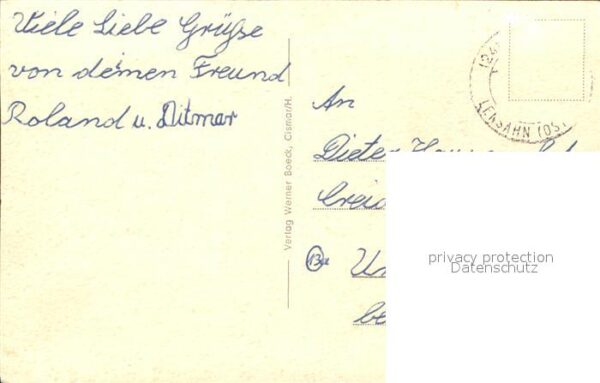 Viele Liebe Grüße
von deinen Freund
Roland u. Ditmar
Verlag Werner Boeck, Cismar/H.
(24
LENSAHN (OST
An
Dieter
13a
privacy protection
Datenschutz